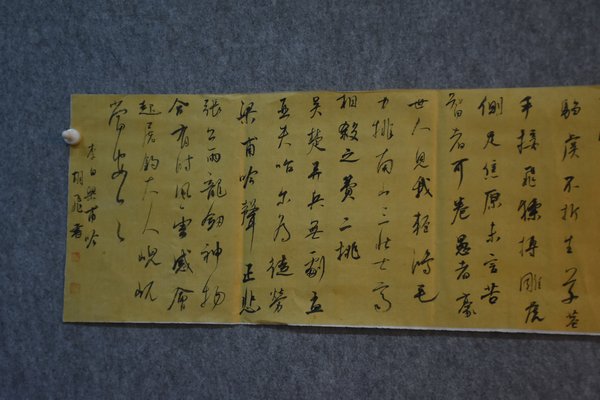 騶虞不折生草莖
手接飛猱搏雕虎
側足焦原未言苦
智者可卷愚者豪
世人見我輕鴻毛
力排南山三壯士齊
相殺之費二桃
吳楚弄兵無劇孟
亞夫咍尔為徒勞
梁甫吟聲正悲
張公兩龍劍神物
合有時風雲感會
起屠釣大人峴屼
當安之
李白梁甫吟
胡 書